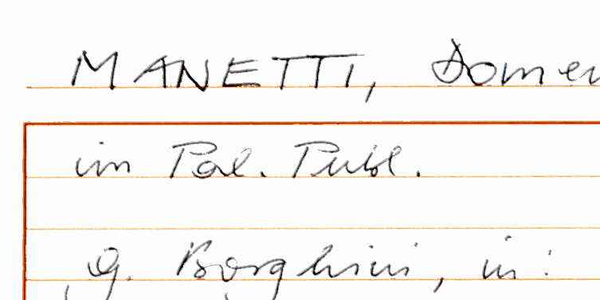 MANETTI, Domen
im Pal. Publ.
G. Borghini, in: